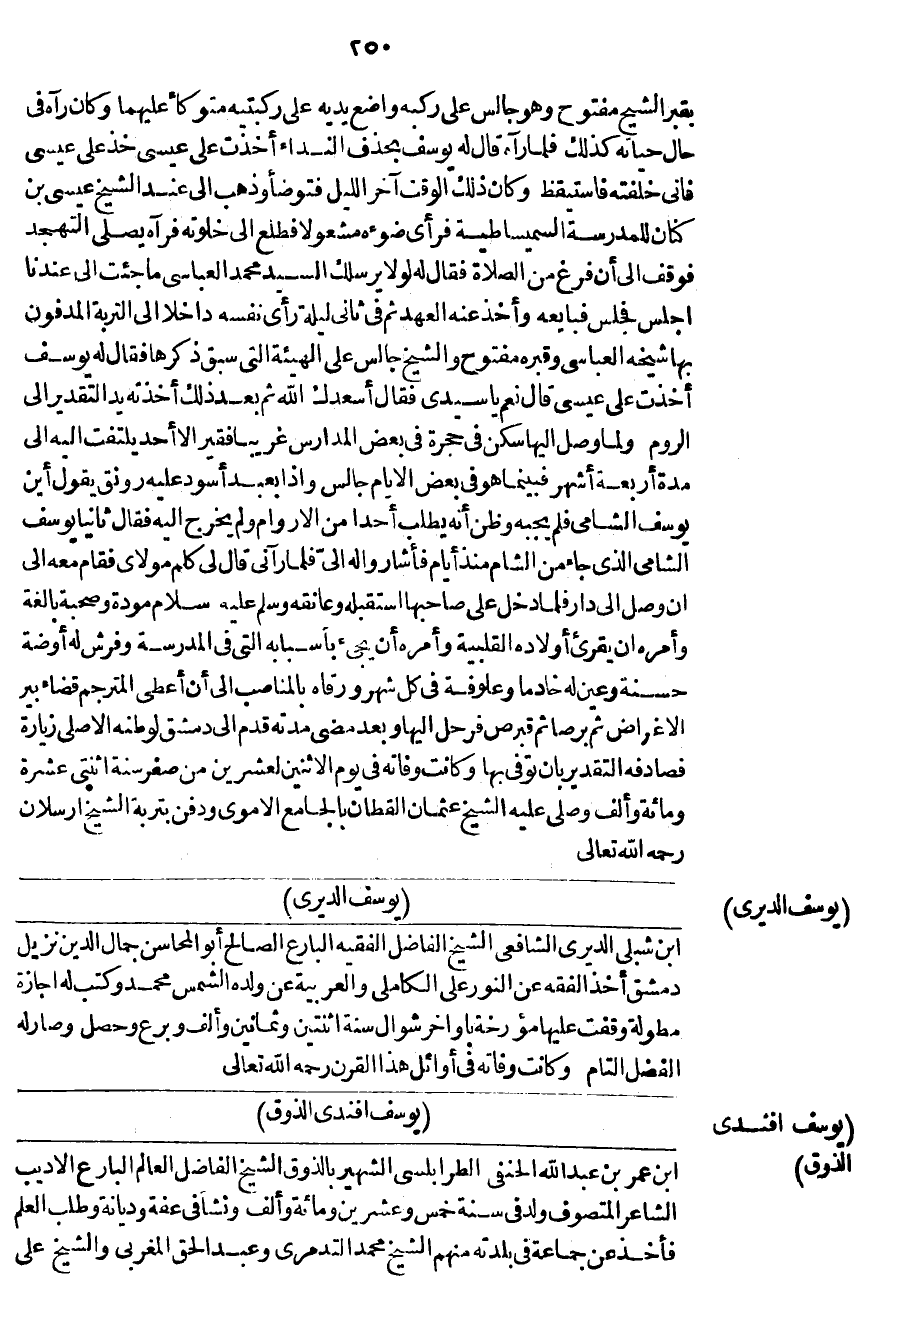 ٢٥٠
بقبر الشيخ مفتوح وهو جالس على ركبه واضع يديه على ركبتيه متوكأ عليهما وكان رآه فى
حال حياته كذلك فلما رآه قال له يوسف بحذف النداء أخذت على عيسى خذ على عيسى
فانى خلفته فاستيقظ وكان ذلك الوقت آخر الليل فتوضأ وذهب الى عند الشيخ عيسى بن
كنان للمدرسة السميساطية فرأى ضوءه مشعولا فطلع الى خلوته فرآه يصلى التهجد
فوقف الى أن فرغ من الصلاة فقال له لولا يرسلك السيد محمد العباسى ما جئت الى عندنا
اجلس فجلس فبايعه وأخذ عنه العهد ثم فى ثانى ليلة رأى نفسه داخلا الى التربة المدفون
بها شيخه العباسى وقبره مفتوح والشيخ جالس على الهيئة التى سبق ذكرها فقال له يوسف
أخذت على عيسى قال نعم ياسيدى فقال أسعدك الله ثم بعد ذلك أخذته يد التقدير الى
الروم ولما وصل اليها سكن فى حجرة فى بعض المدارس غريبا فقير الا أحد يلتفت اليه الى
مدة أربعة أشهر فبينما هو فى بعض الايام جالس واذا بعبد أسود عليه رونق يقول أين
يوسف الشامى فلم يجبه وظن أنه يطلب أحدا من الاروام ولم يخرج اليه فقال ثانيا يوسف
الشامى الذى جاء من الشام منذ أيام فأشار واله الىّ فلما رآنى قال لى كلم مولاى فقام معه الى
ان وصل الى دار فلما دخل على صاحبها استقبله وعانقه وسلم عليه سلام مودة وصحبة بالغة
وأمره ان يقرئ أولاده القلبية وأمره أن يجىء بأسبابه التى فى المدرسة وفرش له أوضة
حسنة وعين له خادما وعلوفة فى كل شهر ورقاه بالمناصب الى أن أعطى المترجم قضاء بير
الاغراض ثم برصا ثم قبرص فرحل اليها وبعد مضى مدته قدم الى دمشق لوطنه الاصلى زيارة
فصادفه التقدير بان توفى بها وكانت وفاته فى يوم الاثنين لعشرين من صفر سنة اثنتى عشرة
ومائة وألف وصلى عليه الشيخ عثمان القطان بالجامع الاموى ودفن بتربة الشيخ ارسلان
رحمه الله تعالى
(يوسف الديرى)
(يوسف الديرى)
ابن شبلى الديرى الشافعى الشيخ الفاضل الفقيه البارع الصالح أبو المحاسن جمال الدين نزيل
دمشق أخذ الفقه عن النور على الكاملى والعربية عن ولده الشمس محمد وكتب له اجازة
مطولة وقفت عليها مؤرخة باواخر شوال سنة اثنتين وثمانين وألف وبرع وحصل وصار له
الفضل التام وكانت وفاته فى أوائل هذا القرن رحمه الله تعالى
(يوسف افندى الذوق)
(يوسف افندى
الذوق)
ابن عمر بن عبد الله الحنفى الطرابلسى الشهير بالذوق الشيخ الفاضل العالم البارع الاديب
الشاعر المتصوف ولد فى سنة خمس وعشرين ومائة وألف ونشأ فى عفة وديانة وطلب العلم
فأخذ عن جماعة فى بلدته منهم الشيخ محمد التدمرى وعبد الحق المغربى والشيخ على